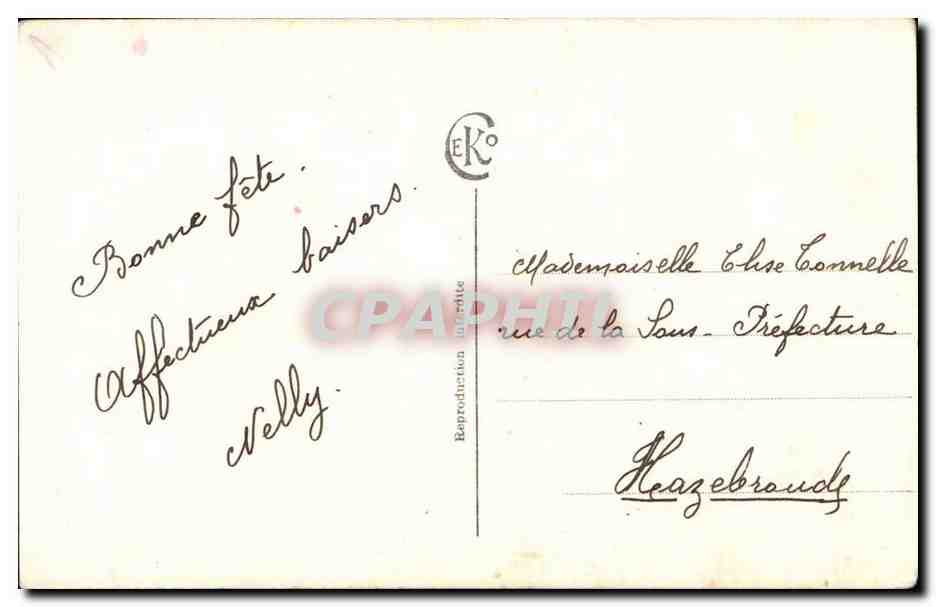 Bonne fête.
Affectueux baisers.
Nelly.
CEKO
Reproduction interdite
CPAPHIL
Mademoiselle Elise Connelle
rue de la Sous-Préfecture
Hazebrouck